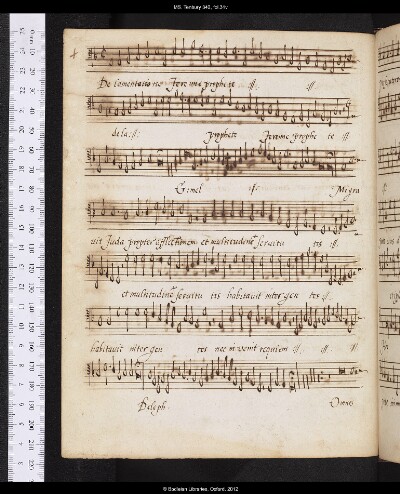 MS. Tenbury 342, fol. 31v
De lamentatio ne Jere mie prophe te :||: :||:
de la :||: prophete Jeremie prophe te :||:
Gimel :||: Migra
vit Juda propter afflictionem et multitudine servitu tis :||:
et multitudine servitu tis habitavit inter gen tes :||:
habitavit inter gen tes nec invenit requiem :||: :||:
Deleth. Omnes
© Bodleian Libraries, Oxford, 2012